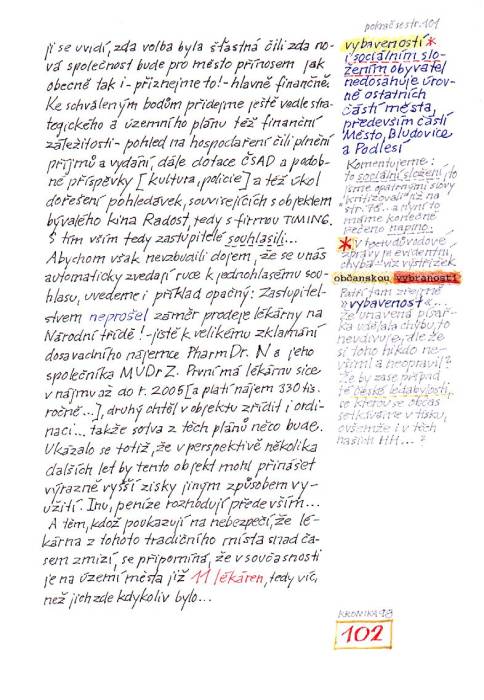 ji se uvidí, zda volba byla šťastná čili zda no-
vá společnost bude pro město přínosem jak
obecně tak i - přiznejme to! - hlavně finančně.
Ke schváleným bodům přidejme ještě vedle stra-
tegického a územního plánu též finanční
záležitosti - pohled na hospodaření čili plnění
příjmů a vydání, dále dotace ČSAD a podob-
né příspěvky [kultura, policie] a též úkol
dořešení pohledávek, souvisejících s objektem
bývalého kina Radost, tedy s firmou TIMING.
S tím vším tedy zastupitelé souhlasili...
Abychom však nevzbudili dojem, že se u nás
automaticky zvedají ruce k jednohlasému sou-
hlasu, uvedeme i příklad opačný: Zastupitel-
stvem neprošel záměr prodeje lékárny na
Národní třídě! - jistě k velikému zklamání
dosavadního nájemce PharmDr. N a jeho
společníka MUDr Z. První má lékárnu sice
v nájmu až do r. 2005 [a platí nájem 330 tis.
ročně...], druhý chtěl v objektu zřídit i ordi-
naci... takže sotva z těch plánů něco bude.
Ukázalo se totiž, že v perspektivě několika
dalších let by tento objekt mohl přinášet
výrazně vyšší zisky jiným způsobem vy-
užití. Inu, peníze rozhodují především...
A těm, kdož poukazují na nebezpečí, že lé-
kárna z tohoto tradičního místa snad ča-
sem zmizí, se připomíná, že v současnosti
je na území města již 11 lékáren, tedy víc,
než jich zde kdykoliv bylo...
pokrač se str. 101
vybaveností *
i sociálním slo-
žením obyvatel
nedosahuje úrov-
ně ostatních
částí města,
především částí
Město, Bludovice
a Podlesí
Komentujeme:
to sociální složení jo
jsme opatrnými slovy
"kritizovali" už na
str. 95... a nyní to
máme konečně
řečeno naplno.
* v té důvodové
zprávy je evidentní
chyba - viz výstřižek
občanskou vybraností
Patří tam zřejmě
"vybavenost"...
že unavená písař-
ka udělala chybu, to
nevadivuje, ale že
si toho nikdo ne-
všiml a neopravil?
že by zase případ
té české ledabylosti,
se kterou se občas
setkáváme v tisku,
ovšemže i v těch
našich HH...?
KRONIKA 98
102